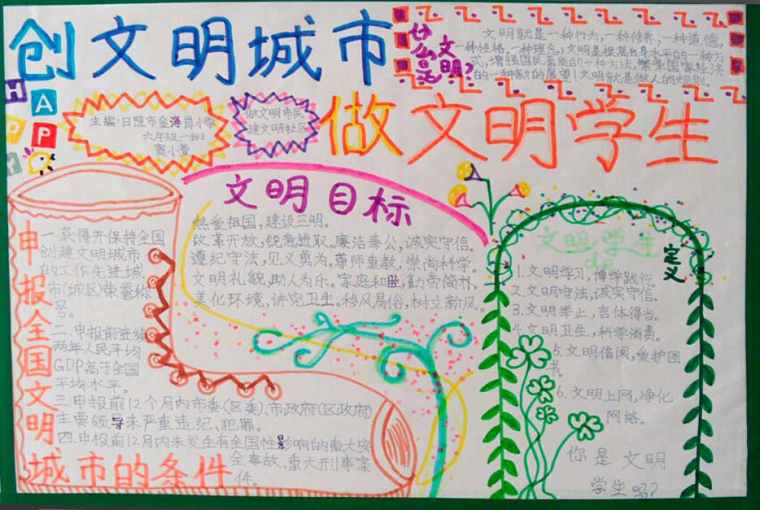 创文明城市
什么是
文明?
文明就是一种行为,一种修养,一种道德,
一种性格,一种理念,文明是根据自身水平的一种方
式,增强国民素质的一种方法,
的一种
HAPPY
主编:日照市金海岸小学
六年级一班
做文明市民
建文明社区
做文明学生
文明目标
热爱祖国,建设三明。
改革开放,锐意进取。廉洁奉公,诚实守信。
遵纪守法,见义勇为,尊师重教,崇尚科学。
文明礼貌,助人为乐。家庭和睦,勤劳简朴。
美化环境,讲究卫生。移风易俗,树立新风。
申报全国文明
城市的条件
一.获得并保持全国
创建文明城市
的工作先进城
市(城区)荣誉称
号。
二.申报前连续
两年人民平均
GDP高于全国
平均水平。
三.申报前12个月内市委(区委)、市政府(区政府)
主要领导未严重违纪、犯罪。
四.申报前12月内未发生有全国性影响的重大安
全事故、重大刑事案
件。
文明学生
的
定义
1.文明学习,博学践行。
2.文明守法,诚实守信。
3.文明举止,言体得当。
4.文明卫生,科学消费。
5.文明借阅,爱护图
书。
6.文明上网,净化
网络。
你是文明
学生吗?